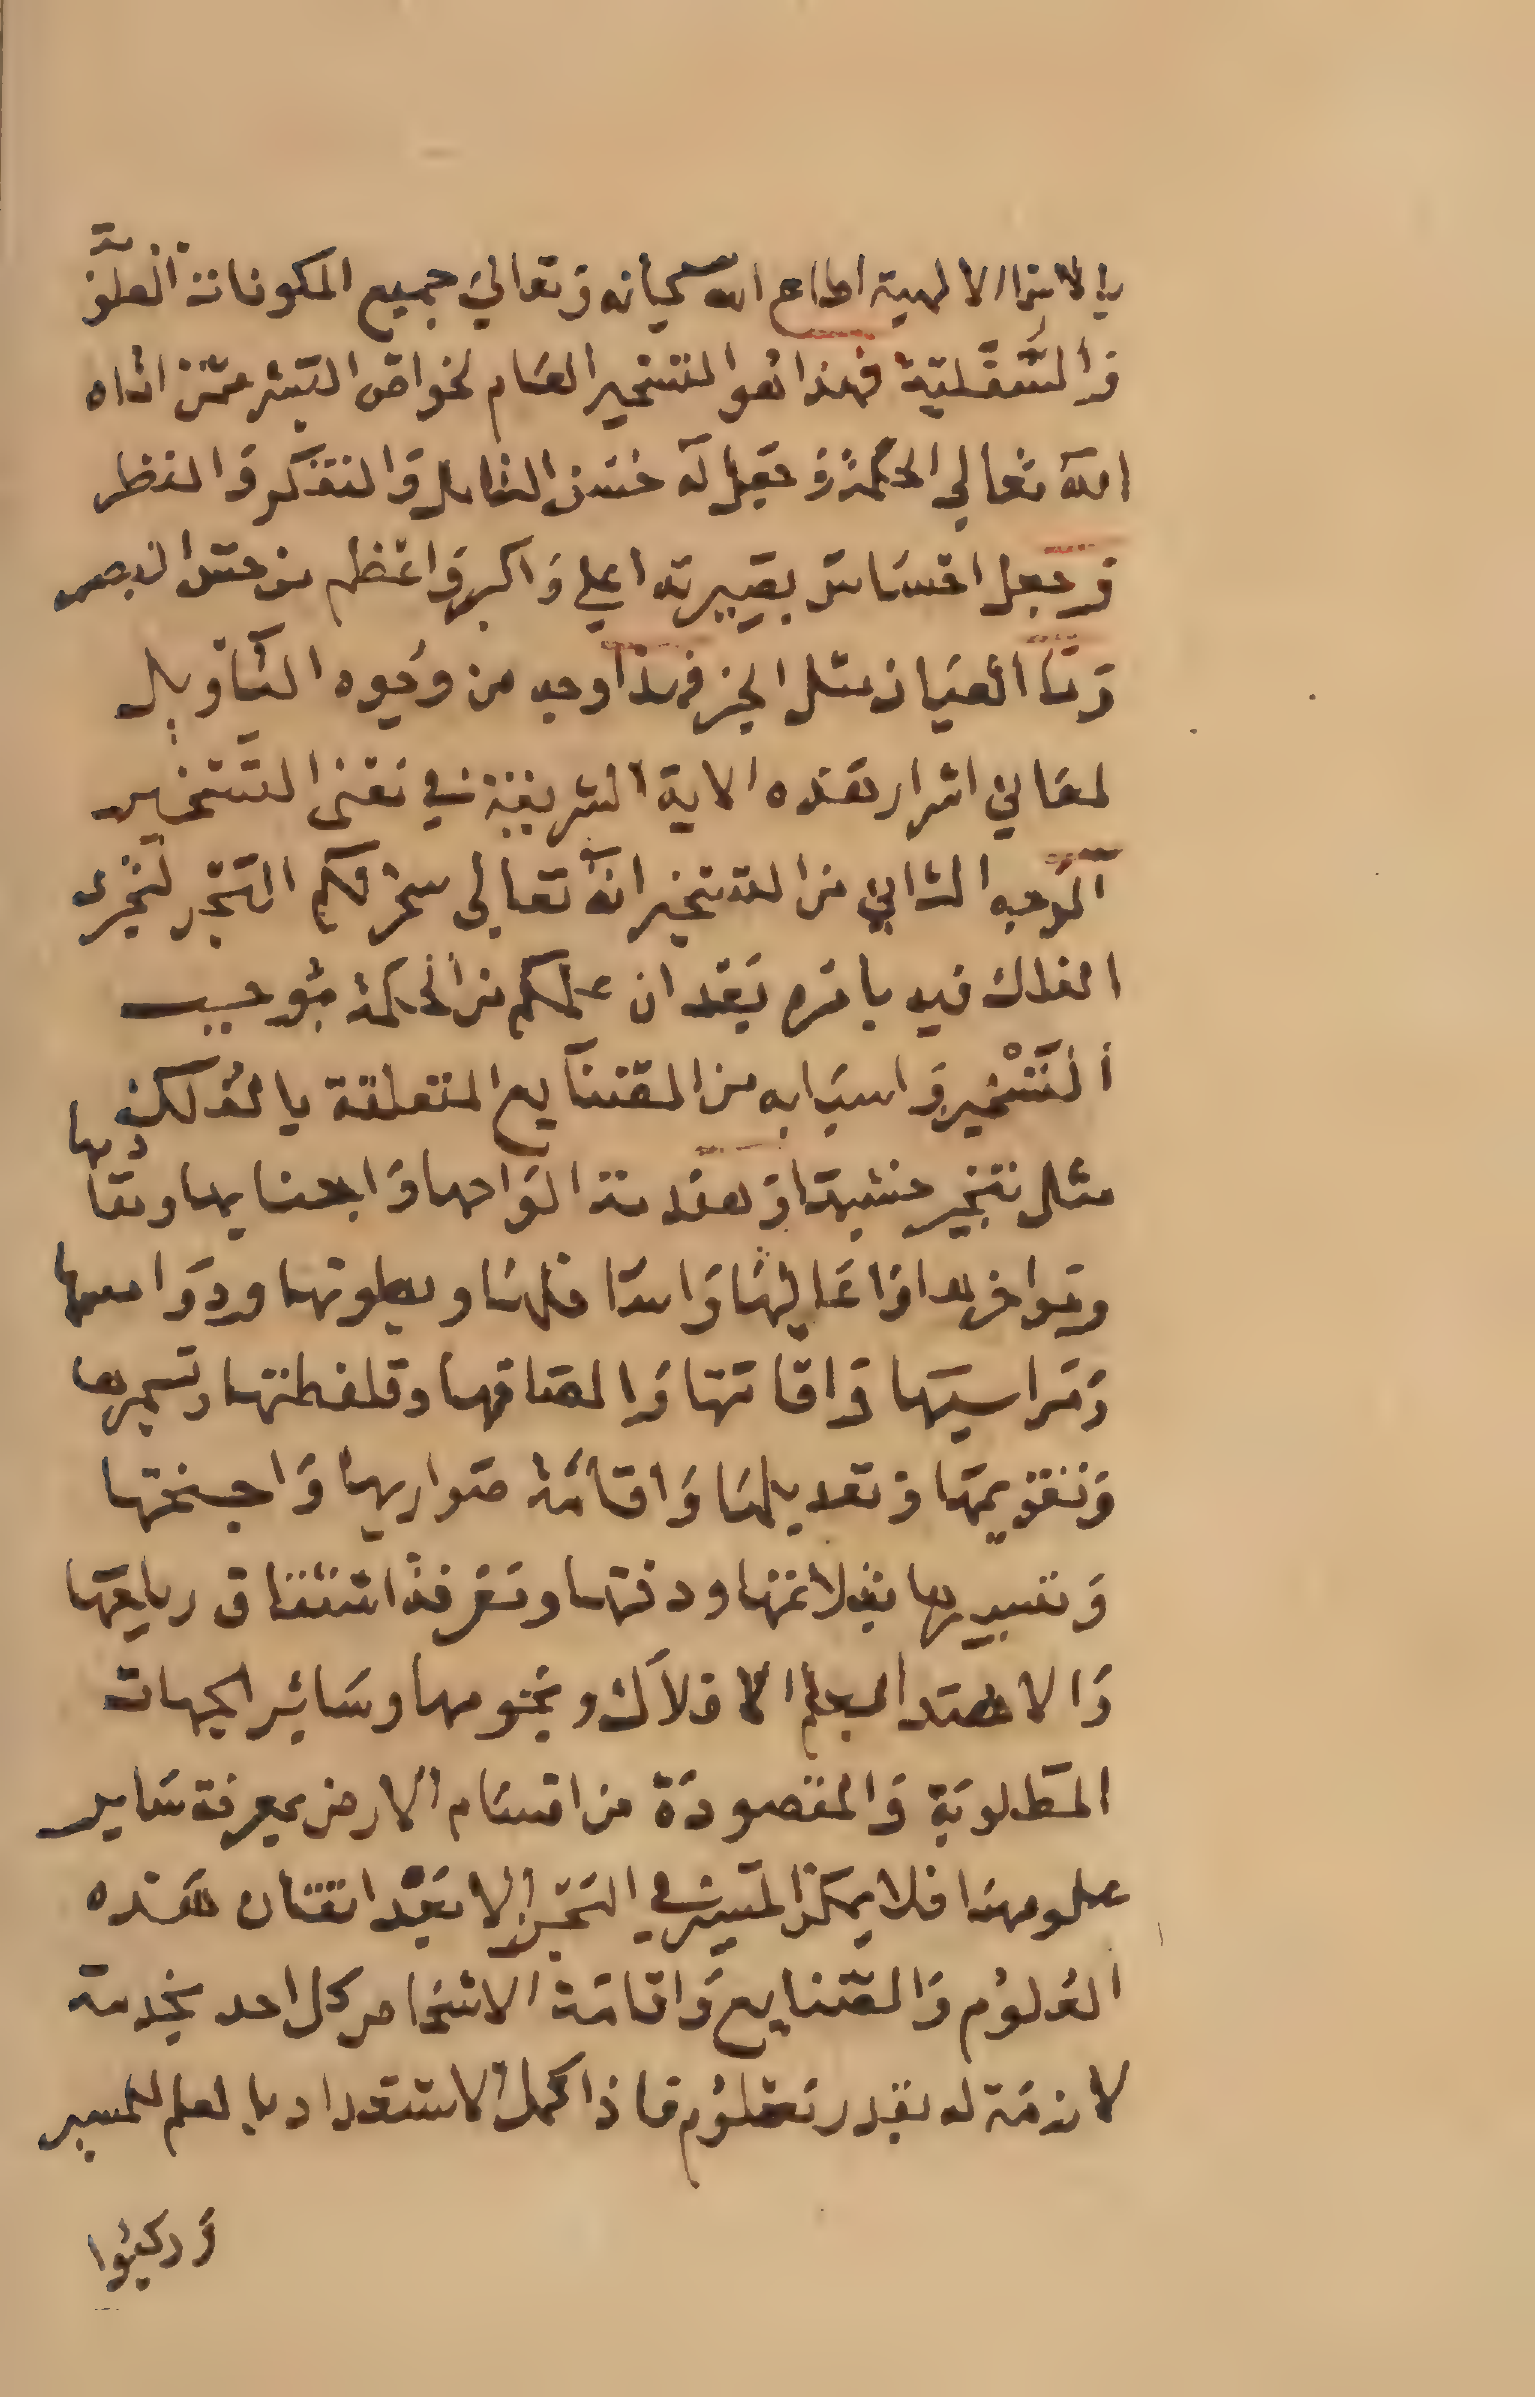 بالاسرار الالهية اطاع الله سبحانه وتعالى جميع المكونات العلوية
والسفلية فهذا هو التسخير العام لخواص البشر ممن اتاه
الله تعالى الحكمة وجعل له حسن التامل والتفكر والنظر
وجعل احساس بصيرته اعلى واكبر واعظم من حس البصر
وما العيان مثل الخبر فهذا وجه من وجوه التاويل
لمعاني اسرار هذه الاية الشريفة في معنى التسخير
الوجه الثاني من التسخير انه تعالى سخر لكم البحر لتجرى
الفلك فيه بامره بعد ان علمكم من الحكمة موجب
التسخير واسبابه من الصنايع المتعلقة بالفلك
مثل نجير خشبها وهندسة الواحها واجنابها ومقادمها
ومواخرها واعاليها واسافلها وبطونها ودوامسها
ومراسيها واقامتها والصاقها وقلفطتها وتسميرها
وتقويمها وتعديلها واقامة صواريها واجنحتها
وتسييرها بقلاعها ودفتها ومعرفة استنشاق رياحها
والاهتدا بعلم الافلاك ونجومها وساير الجهات
المطلوبة والمقصودة من اقسام الارض بمعرفة ساير
علومها فلا يمكن المسير في البحر الا بعد اتقان هذه
العلوم والصنايع واقامة الاشخاص كل احد بخدمة
لازمة له بقدر معلوم فاذا كمل الاستعداد بالعلم للمسير
وركبوا